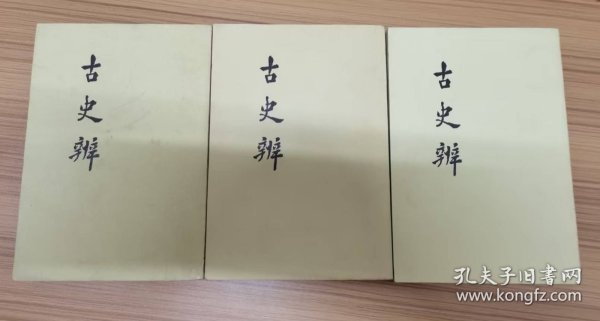 古史辨
古史辨
古史辨
孔夫子旧書网
www.kongfz.com